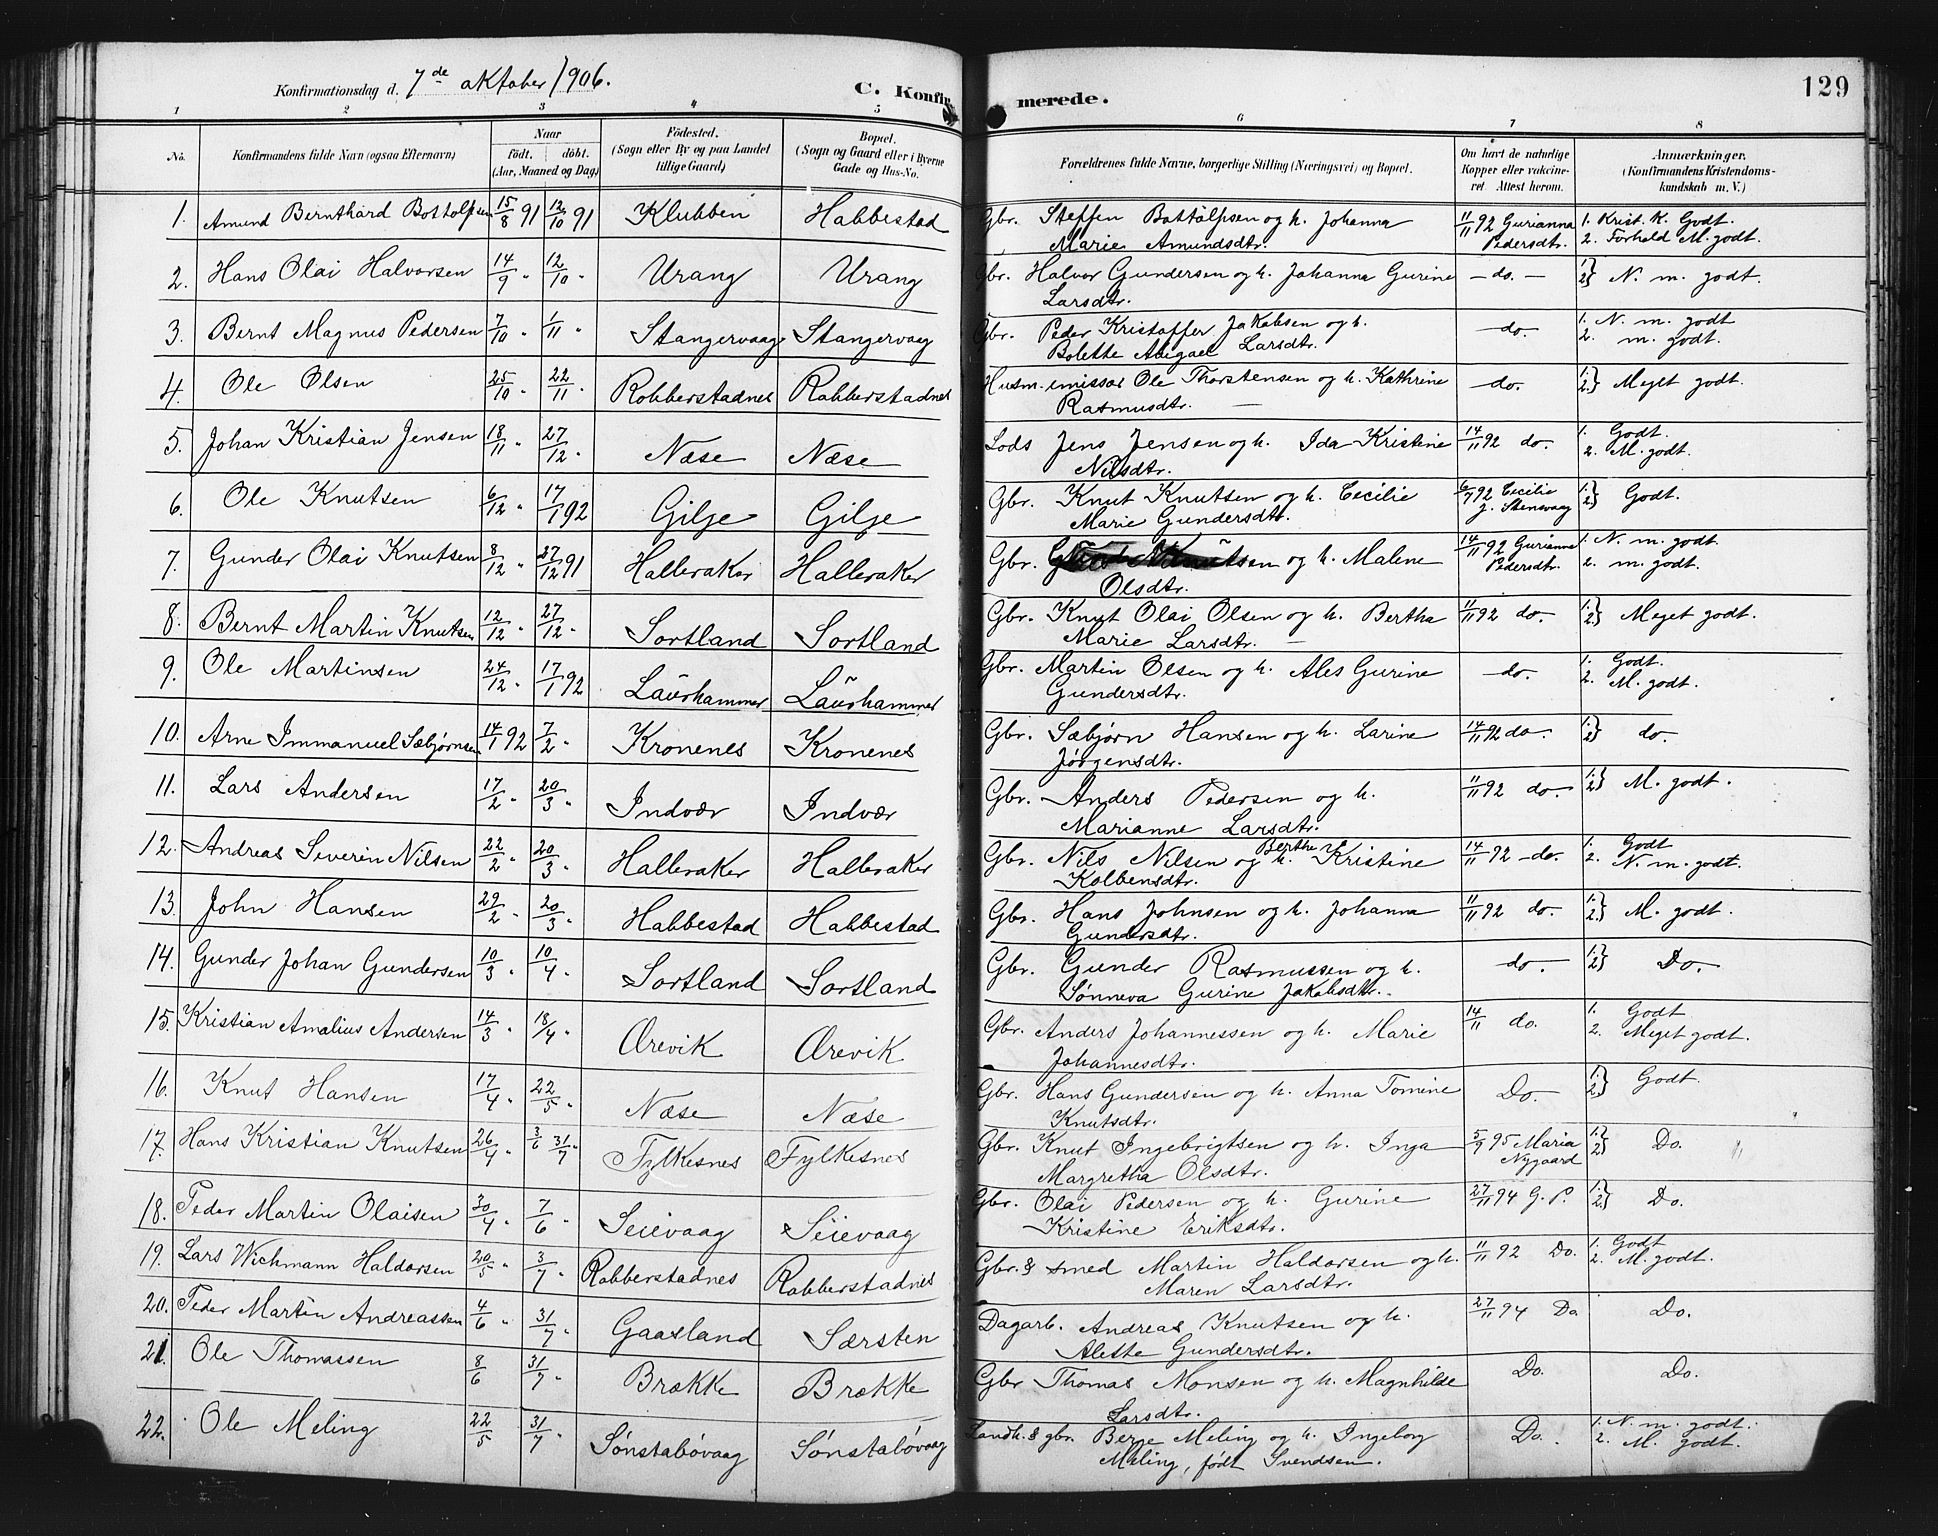 Konfirmationsdag d. 7de oktober 1906.
C. Konfirmerede.
129
1 2 3 4 5 6 7 8
No. Konfirmandens fulde Navn (ogsaa Efternavn) Naar födt. döbt. (Aar, Maaned og Dag) Födested. (Sogn eller By og paa Landet tillige Gaard) Bopæl. (Sogn og Gaard eller i Byerne Gade og Hus-No. Forældrenes fulde Navne, borgerlige Stilling (Næringsvei) og Bopæl. Om havt de naturlige Kopper eller vaccineret. Attest herom. Anmærkninger. (Konfirmandens Kristendomskundskab m. V.)
1. Amund Bernthard Bottolfsen 15/8 91 12/10 91 Klubben Habbestad Gbr. Steffen Bottolfsen og h. Johanna Marie Amundsdtr. 11/11 92 Gurianna Pedersdtr. 1. Krist. K. Godt. 2. Forhold M. godt.
2. Hans Olai Halvorsen 14/9 " 12/10 " Urang Urang Gbr. Halvor Gundersen og h. Johanna Gurine Larsdtr. — do. — 1. 2.} N. m. godt.
3. Bernt Magnus Pedersen 7/10 " 1/11 " Stangervaag Stangervaag Gbr. Peder Kristoffer Jakobsen og h. Bolette Abigael Larsdtr. — do. 1. N. m. godt 2. m. godt.
4. Ole Olsen 25/10 " 22/11 " Robberstadnes Robberstadnes Husm. emissær Ole Thorstensen og h. Kathrine Rasmusdtr. — — do. 1. 2.} Meget godt.
5. Johan Kristian Jensen 18/11 " 27/12 " Næse Næse Lods Jens Jensen og h. Ida Kristine Nilsdtr. 14/11 92 do. 1. Godt. 2. M. godt.
6. Ole Knutsen 6/12 " 17/1 92 Gilje Gilje Gbr. Knut Knutsen og h. Cecilie Marie Gundersdtr. 6/7 92 Cecilie J. Stensvaag 1. 2} Godt.
7. Gunder Olai Knutsen 8/12 " 27/12 91 Halleraker Halleraker Gbr. Knutsen og h. Malene Olsdtr. 14/11 92 Gurianna Pedersdtr. 1. N. m. godt. 2. m. godt.
8. Bernt Martin Knutsen 12/12 " 27/12 " Sortland Sortland Gbr. Knut Olai Olsen og h. Bertha Marie Larsdtr. — 11/11 92 do. 1. 2} Meget godt.
9. Ole Martinsen 24/12 " 17/1 92 Laurhammer Laurhammer Gbr. Martin Olsen og h. Ales Gurine Gundersdtr. — do. 1. Godt. 2. M. godt.
10. Arne Immanuel Sæbjørnsen 14/1 92 7/2 " Kronenes Kronenes Gbr. Sæbjørn Hansen og h. Larine Jørgensdtr. 14/11 92 do. 1. 2} do.
11. Lars Andersen 17/2 " 20/3 " Indvær Indvær Gbr. Anders Pedersen og h. Marianne Larsdtr. 11/11 92 do. 1. 2} M. godt.
12. Andreas Severin Nilsen 22/2 " 20/3 " Halleraker Halleraker Gbr. Nils Nilsen og h. Berthe Kristine Kolbensdtr. 14/11 92 — do. 1. Godt 2. N. m. godt.
13. John Hansen 29/2 " 20/3 " Habbestad Habbestad Gbr. Hans Johnsen og h. Johanna Gundersdtr. 11/11 92 do. 1. 2.} M. godt.
14. Gunder Johan Gundersen 10/3 " 10/4 " Sortland Sortland Gbr. Gunder Rasmussen og h. Sønneva Gurine Jakobsdtr. do. — 1. 2} Do. —
15. Kristian Amalius Andersen 14/3 " 18/4 " Ørevik Ørevik Gbr. Anders Johannessen og h. Marie Johannesdtr. 14/11 do. 1. Godt 2. Meget godt.
16. Knut Hansen 17/4 " 22/5 " Næse Næse Gbr. Hans Gundersen og h. Anna Tomine Knutsdtr. Do. — 1. 2} Godt.
17. Hans Kristian Knutsen 26/4 " 3/6 31/7 " Fylkesnes Fylkesnes Gbr. Knut Ingebrigtsen og h. Inga Margretha Olsdtr. 5/9 95 Maria Nygaard 1. 2} Do.
18. Peder Martin Olaisen 30/4 " 7/6 " Seievaag Seievaag Gbr. Olai Pedersen og h. Gurine Kristine Eriksdtr. 27/11 94 G. P. 1. 2} Do.
19. Lars Wichmann Haldorsen 20/5 " 3/7 " Robberstadnes Robberstadnes Gbr. & smed Martin Haldorsen og h. Maren Larsdtr. 11/11 92 Do. 1. Godt 2. M. godt.
20. Peder Martin Andreassen 4/6 " 31/7 " Gaasland Særsten Dagarb. Andreas Knutsen og h. Alette Gundersdtr. 27/11 94 Do Do.
21. Ole Thomassen 8/6 31/7 " Brække Brække Gbr Thomas Monsen og h. Magnhilde Larsdtr. Do. Do.
22. Ole Meling 22/5 31/7 " Sønstabøvaag Sønstabøvaag Landh. & gbr. Berge Meling og h. Ingeborg Meling, født Svendsen. Do. 1. N. m. godt. 2. M. godt.